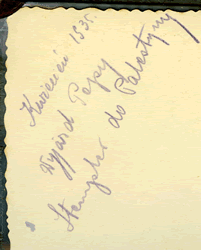 Kwiecień 1935.
Wyjazd Pepy
Stempler do Palestyny